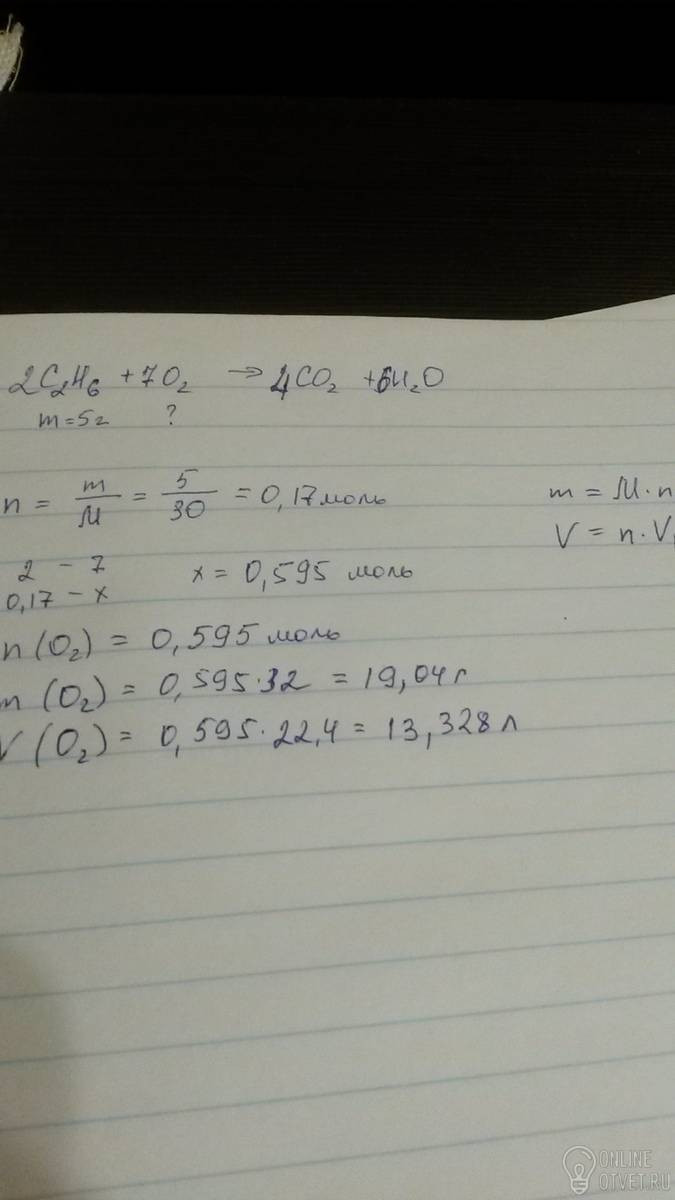 2C₂H₆ + 7O₂ → 4CO₂ + 6H₂O
m=5г ?
n = m/M = 5/30 = 0,17 моль
m = M·n
2 – 7
V = n·V
0,17 – x x = 0,595 моль
n(O₂) = 0,595 моль
m(O₂) = 0,595·32 = 19,04г
V(O₂) = 0,595·22,4 = 13,328 л
ONLINE
OTVET.RU